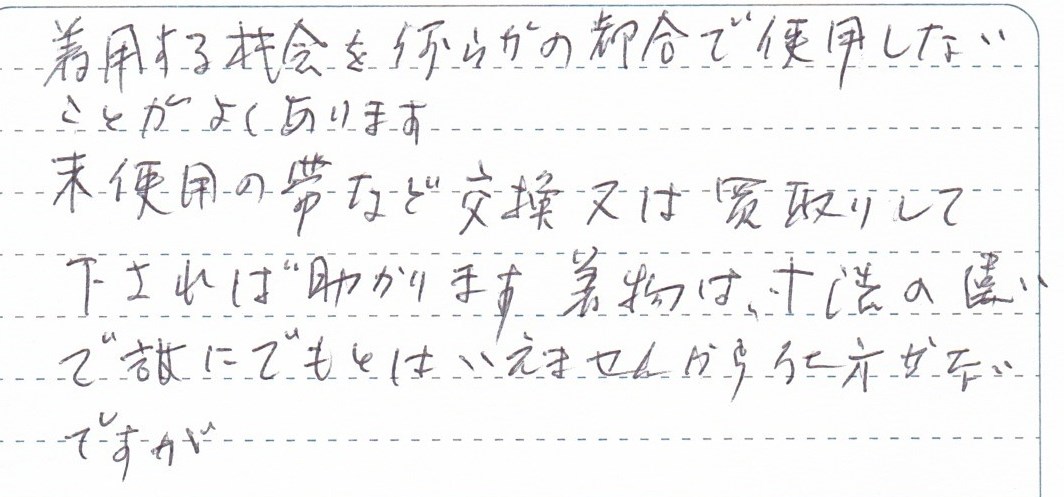 着用する機会を何らかの都合で使用しない
ことがよくあります
未使用の帯など交換又は買取りして
下されば助かります 着物は、寸法の違い
で誰にでもとはいえませんから仕方がない
ですが